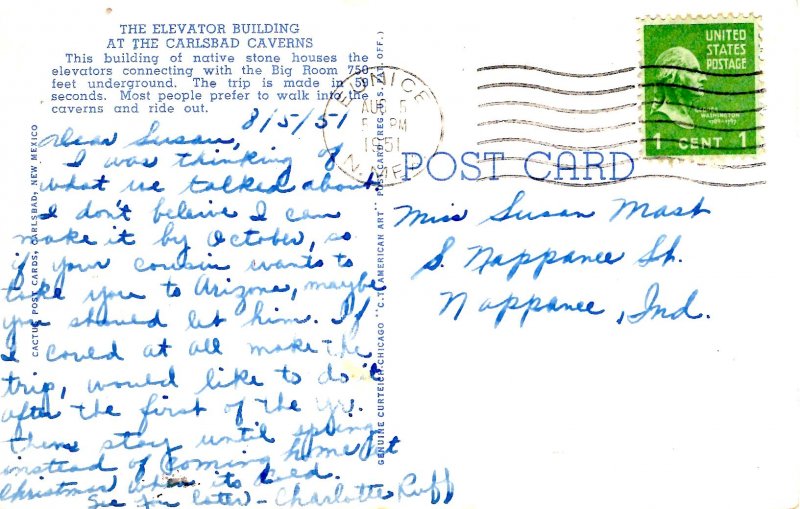 THE ELEVATOR BUILDING
AT THE CARLSBAD CAVERNS
This building of native stone houses the
elevators connecting with the Big Room 750
feet underground. The trip is made in 59
seconds. Most people prefer to walk into the
caverns and ride out.
8/5/51
Dear Susan,
I was thinking of
what we talked about
I don't beleive I can
make it by October, so
if your cousin wants to
take you to Arizone, maybe
you should let him. If
I could at all make the
trip, would like to do it
after the first of the yr.
then stay until spring
instead of coming home at
Christmas when its cold.
See you later - Charlotte Ruff
CACTUS POST CARDS, CARLSBAD, NEW MEXICO
GENUINE CURTEICH-CHICAGO "C.T. AMERICAN ART" POST CARD (REG. U.S. PAT. OFF.)
EUNICE
AUG 5
PM
1951
N. MEX.
UNITED
STATES
POSTAGE
WASHINGTON
1789-1797
1 CENT 1
POST CARD
Miss Susan Mast
S. Nappanee St.
Nappanee, Ind.